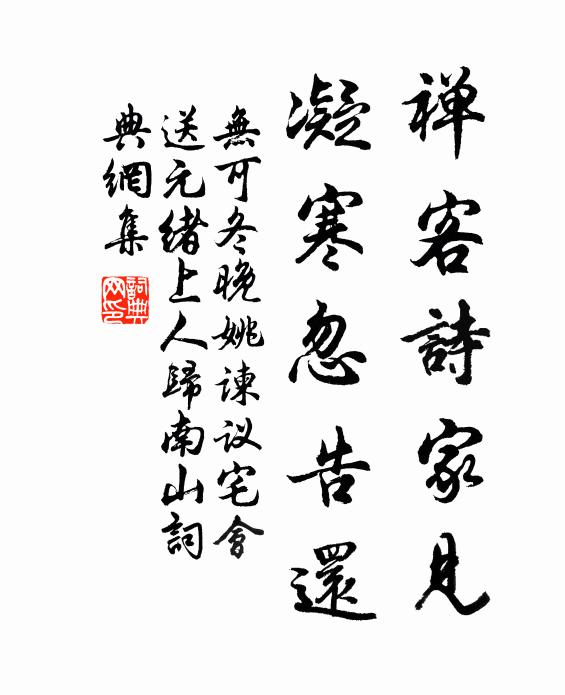 禅客詩家見
凝寒忽告還
無可冬晚姚諫议宅會
送元緒上人歸南山詞
典網集
詞典
网印